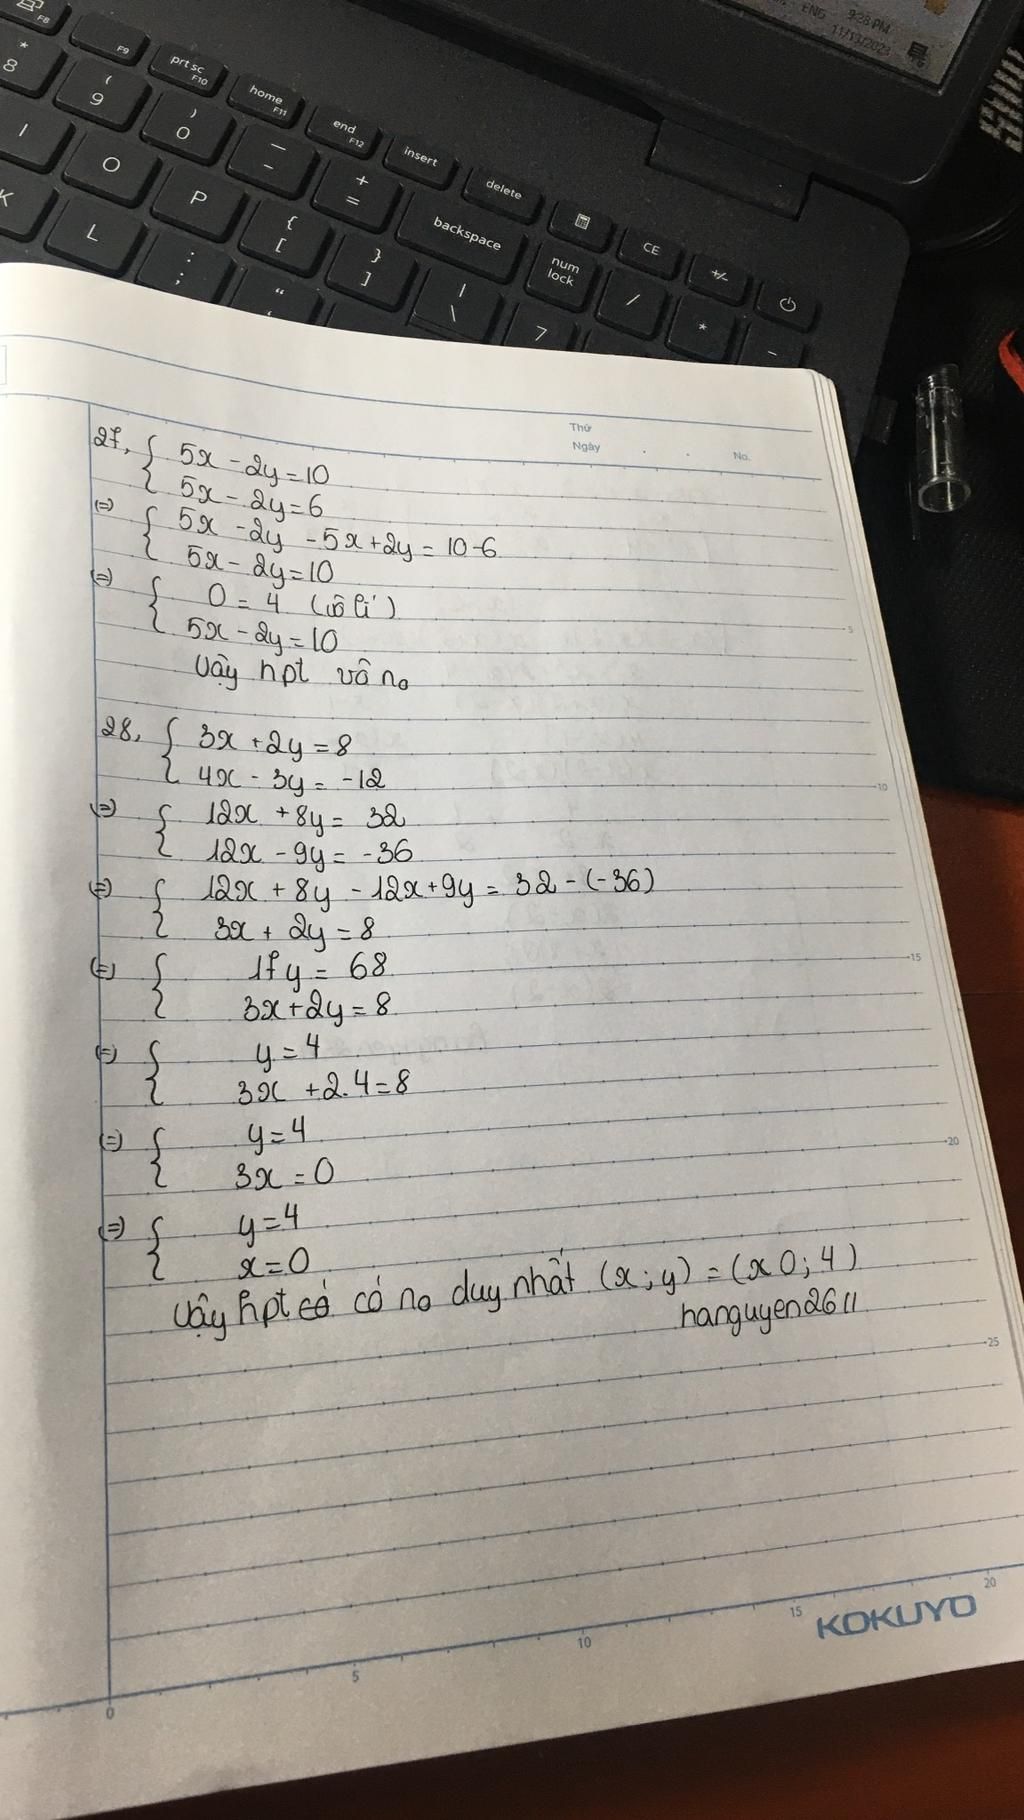 ENG 9:28 PM
11/13/2023
F8 F9 prt sc F10 home F11 end F12 insert delete CE +/-
* 8 ( 9 ) 0 — - + = backspace num lock / * -
I O P { [ } ] | \ 7
K L : ; “ ‘
Thứ
Ngày . . No.
27, { 5x - 2y = 10
5x - 2y = 6
(=) { 5x - 2y - 5x + 2y = 10-6
5x - 2y = 10
(=) { 0 = 4 (vô lí)
5x - 2y = 10
Vậy hpt vô no
28, { 3x + 2y = 8
4x - 3y = -12
(=) { 12x + 8y = 32
12x - 9y = -36
(=) { 12x + 8y - 12x + 9y = 32 - (-36)
3x + 2y = 8
(=) { 17y = 68
3x + 2y = 8
(=) { y = 4
3x + 2.4 = 8
(=) { y = 4
3x = 0
(=) { y = 4
x = 0
Vậy hpt có có no duy nhất (x; y) = (x 0; 4)
hanguyen2611
5
10
15
20
25
0 5 10 15 20
KOKUYO